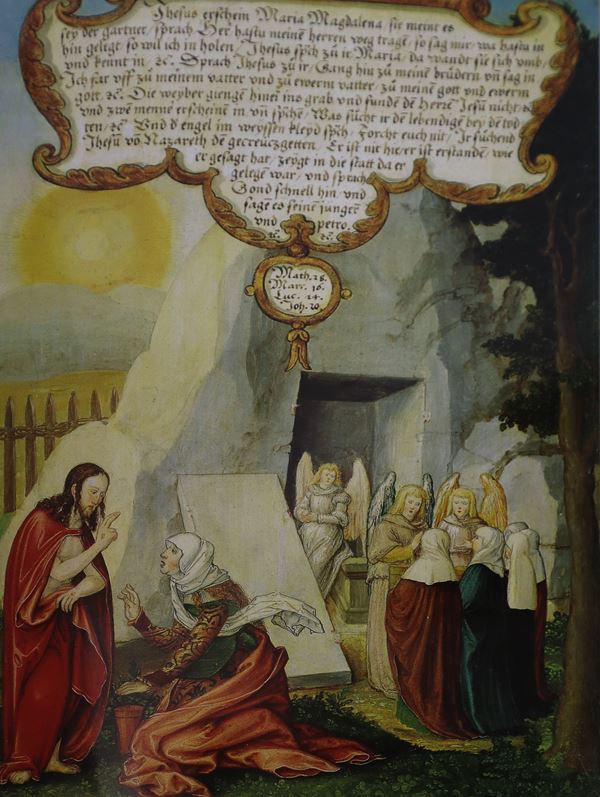 Jhesus erschein Maria Magdalena, sie meint es
sey der gartner, sprach Der hastu meinē herren weg tragē, so sag mir, wa hastu in
hin gelegt, so wil ich in holen, Jhesus sp̄ch zů ir Maria, da wandt sie sich vmb,
vnd kennt in, ꝛc. Sprach Jhesus zů ir, Gang hin zů meinē brüdern vñ sag in
Ich far vff zů meinem vatter vnd zů ewerm vatter, zů meinem gott vnd ewerm
gott, ꝛc. Die weyber giengē hinei ins grab vnd fundē dē herrē Jesū nicht, ꝛc
vnd zwen mennē erscheinē in vñ sp̄chē, Was sůcht ir dē lebendigē bey dē tod
ten, ꝛc Vnd d engel im weyssen kleyd sp̄ch, Forcht euch nit, Jr sůchend
Jhesū vō Nazareth dē gecreutzgetten, Er ist nit hie, er ist erstandē, wie
er gesagt hat, zeygt in die statt da er
gelegē war, vnd sprach
Gond schnell hin, vnd
sagē es seinē jungē
vnd petro,
ꝛc. ꝛc.
Math. 28.
Marc. 16.
Luc. 24.
Joh. 20.